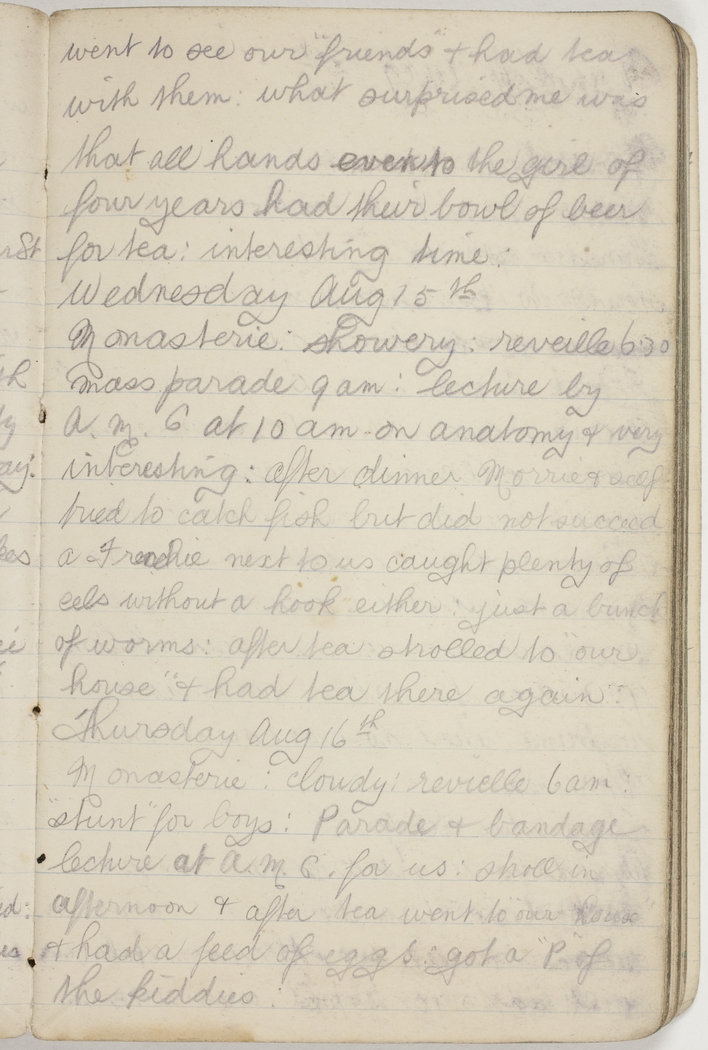 went to see our "friends" & had tea
with them: what surprised me was
that all hands even to the girl of
four years had their bowl of beer
for tea: interesting time:
Wednesday Aug 15th
Monasterie: showery: reveille 6.30
mass parade 9am: lecture by
A.M.C at 10 am on anatomy & very
interesting: after dinner Morrie & self
tried to catch fish but did not succeed
a Frenchie next to us caught plenty of
eels without a hook either: just a bunch
of worms: after tea strolled to "our
house" & had tea there again:
Thursday Aug 16th
Monasterie: cloudy: revielle 6am:
"stunt" for boys: Parade & bandage
lecture at A.M.C. for us: stroll in
afternoon & after tea went to "our house"
& had a feed of eggs: got a "P" of
the kiddies: